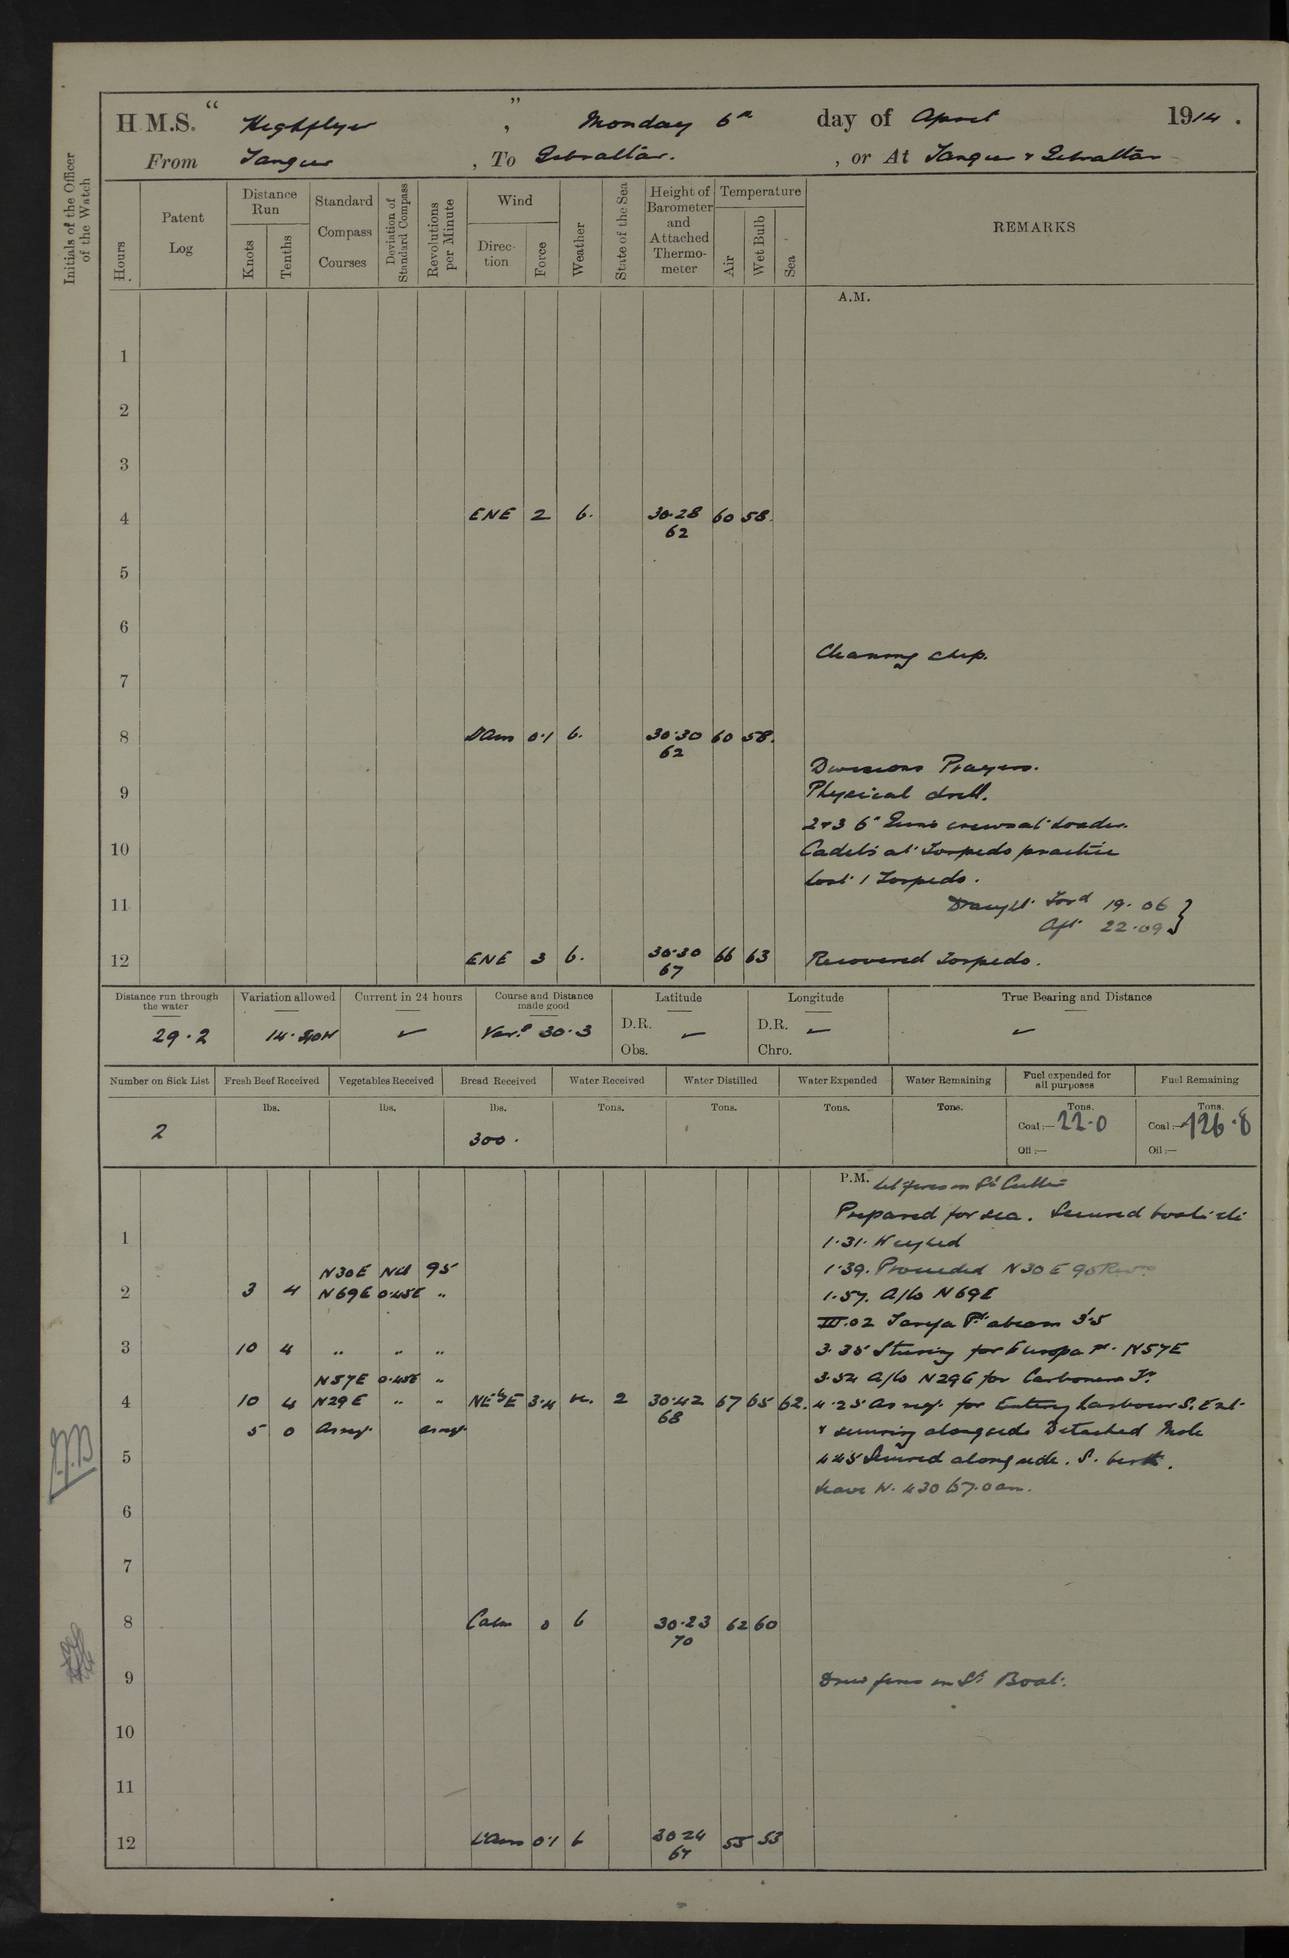 H.M.S. "Highflyer", Monday 6th day of April 1914.
From Tangier, To Gibraltar. , or At Tangier & Gibraltar
Initials of the Officer of the Watch
Hours
Patent Log
Distance Run
Knots
Tenths
Standard Compass Courses
Deviation of Standard Compass
Revolutions per Minute
Wind
Direction
Force
Weather
State of the Sea
Height of Barometer and Attached Thermometer
Temperature
Air
Wet Bulb
Sea
REMARKS
A.M.
1
2
3
4 ENE 2 b. 30.28 60 58.
62
5
6
Cleaning ship.
7
8 0.1 b. 30.30 60 58.
62
Divisions Prayers.
9 Physical drill.
2&3 6" Guns crews at loader.
10 Cadets at Torpedo practice
lost 1 Torpedo.
11 Draught Ford 19.06
Aft 22.09
12 ENE 3 b. 30.30 66 63 Recovered Torpedo.
67
Distance run through the water
29.2
Variation allowed
14.
Current in 24 hours
Course and Distance made good
Vars 30.3
Latitude
D.R.
Obs.
Longitude
D.R.
Chro.
True Bearing and Distance
Number on Sick List
2
Fresh Beef Received
lbs.
Vegetables Received
lbs.
Bread Received
lbs.
300.
Water Received
Tons.
Water Distilled
Tons.
Water Expended
Tons.
Water Remaining
Tons.
Fuel expended for all purposes
Tons.
Coal:— 22.0
Oil:—
Fuel Remaining
Tons.
Coal:— 426.8
Oil:—
P.M. Lit fires in St Cutter
Prepared for sea. Secured boats etc
1 1.31. Weighed
N30E Nil 95 1.39. Proceeded N30E 95 Revs
2 3 4 N69E 0.45E " 1.57. A/co N69E
III.02 Tarifa Pt abeam 3'.5
3 10 4 " " " 3.35 Steering for Europa Pt. N57E
N57E 0.45E " 3.52 A/co N29E for Carbonera Pt
4 10 4 N29E " " NEbE 3.4 bc. 2 30.42 67 65 62. 4.25 As req. for Entering harbour S. Ent.
68
5 0 As req. as req. & securing alongside Detached Mole
5 4.45 Secured alongside. S. berth.
Leave W. 430 to 7.0 am.
6
7
8 Calm 0 b 30.23 62 60
70
9 Drew fires in St Boat.
10
11
12 0.1 b 30.24 55 53
67